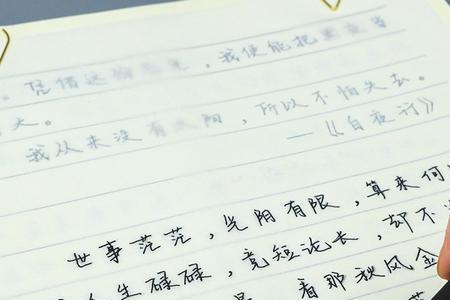 。凭借这份光，我便能把黑夜当
大。
我从来没有太阳，所以不怕失去。
—《白夜行》
世事茫茫，光阴有限，算来何
人生碌碌，竞短论长，却不
看那秋风金